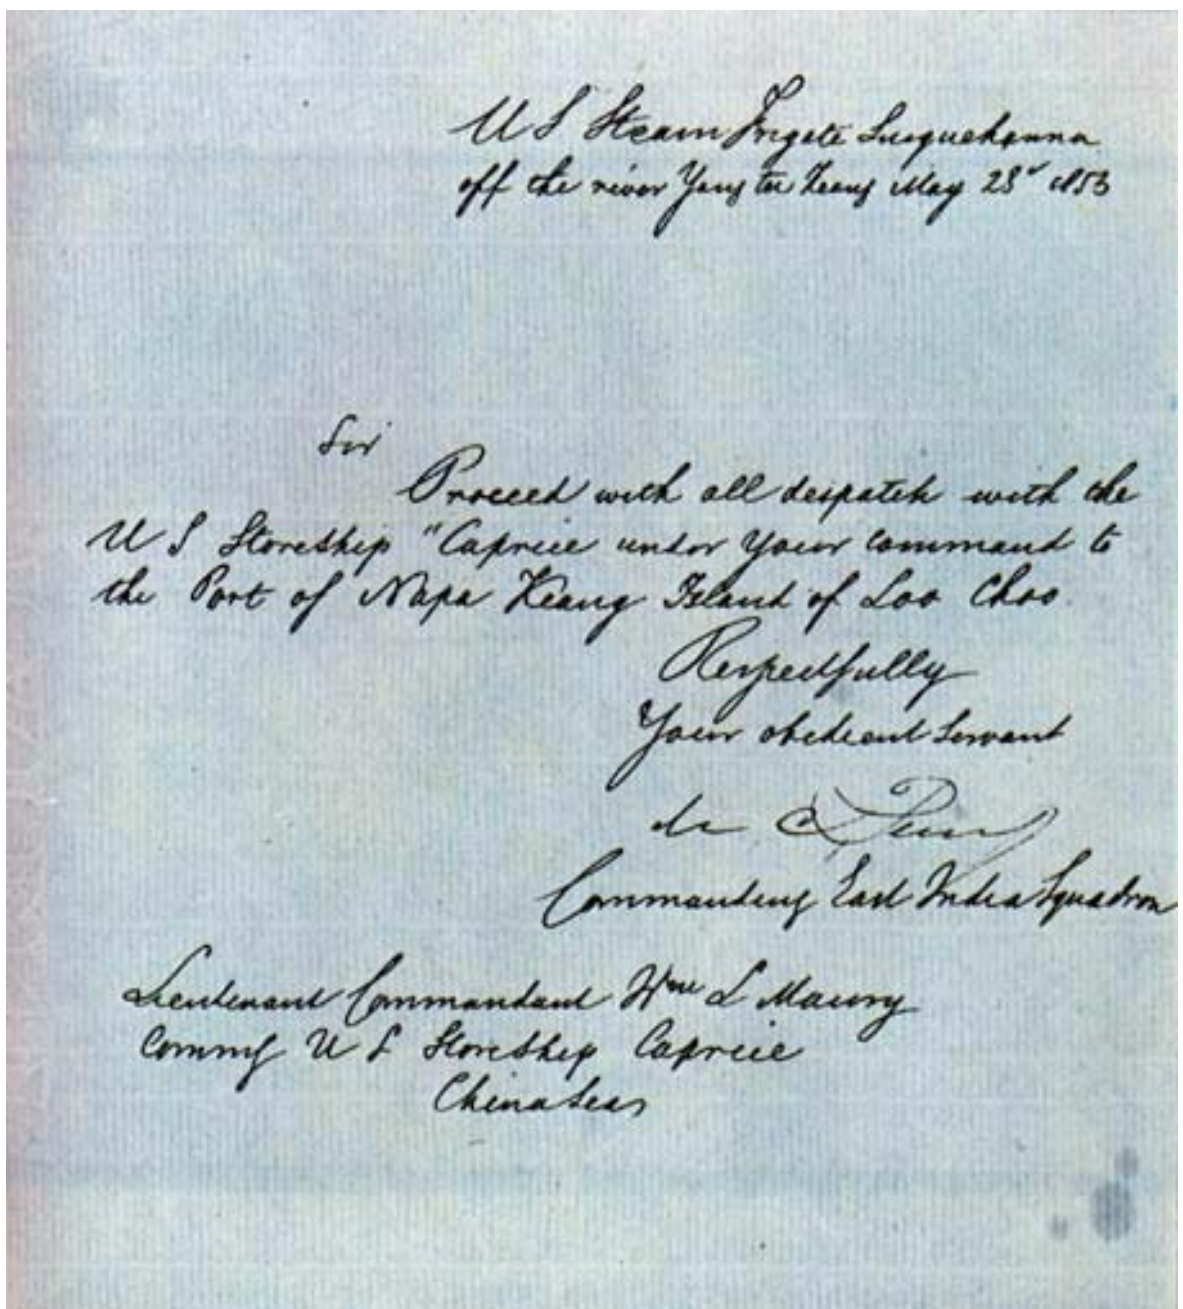 U S Steam Frigate Susquehanna
off the river Yang tse Keang May 23d 1853
Sir
Proceed with all despatch with the
U S Storeship "Caprice under your command to
the Port of Napa Keang Island of Loo Choo.
Respectfully
Your obedient Servant
M C Perry
Commanding East India Squadron
Lieutenant Commandant Wm L Maury
Commg U S Storeship Caprice
China Seas